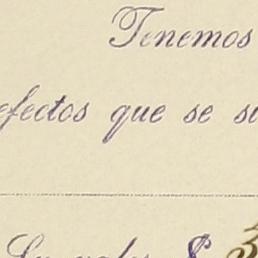 Tenemos
efectos que se su
Su valor $ 3